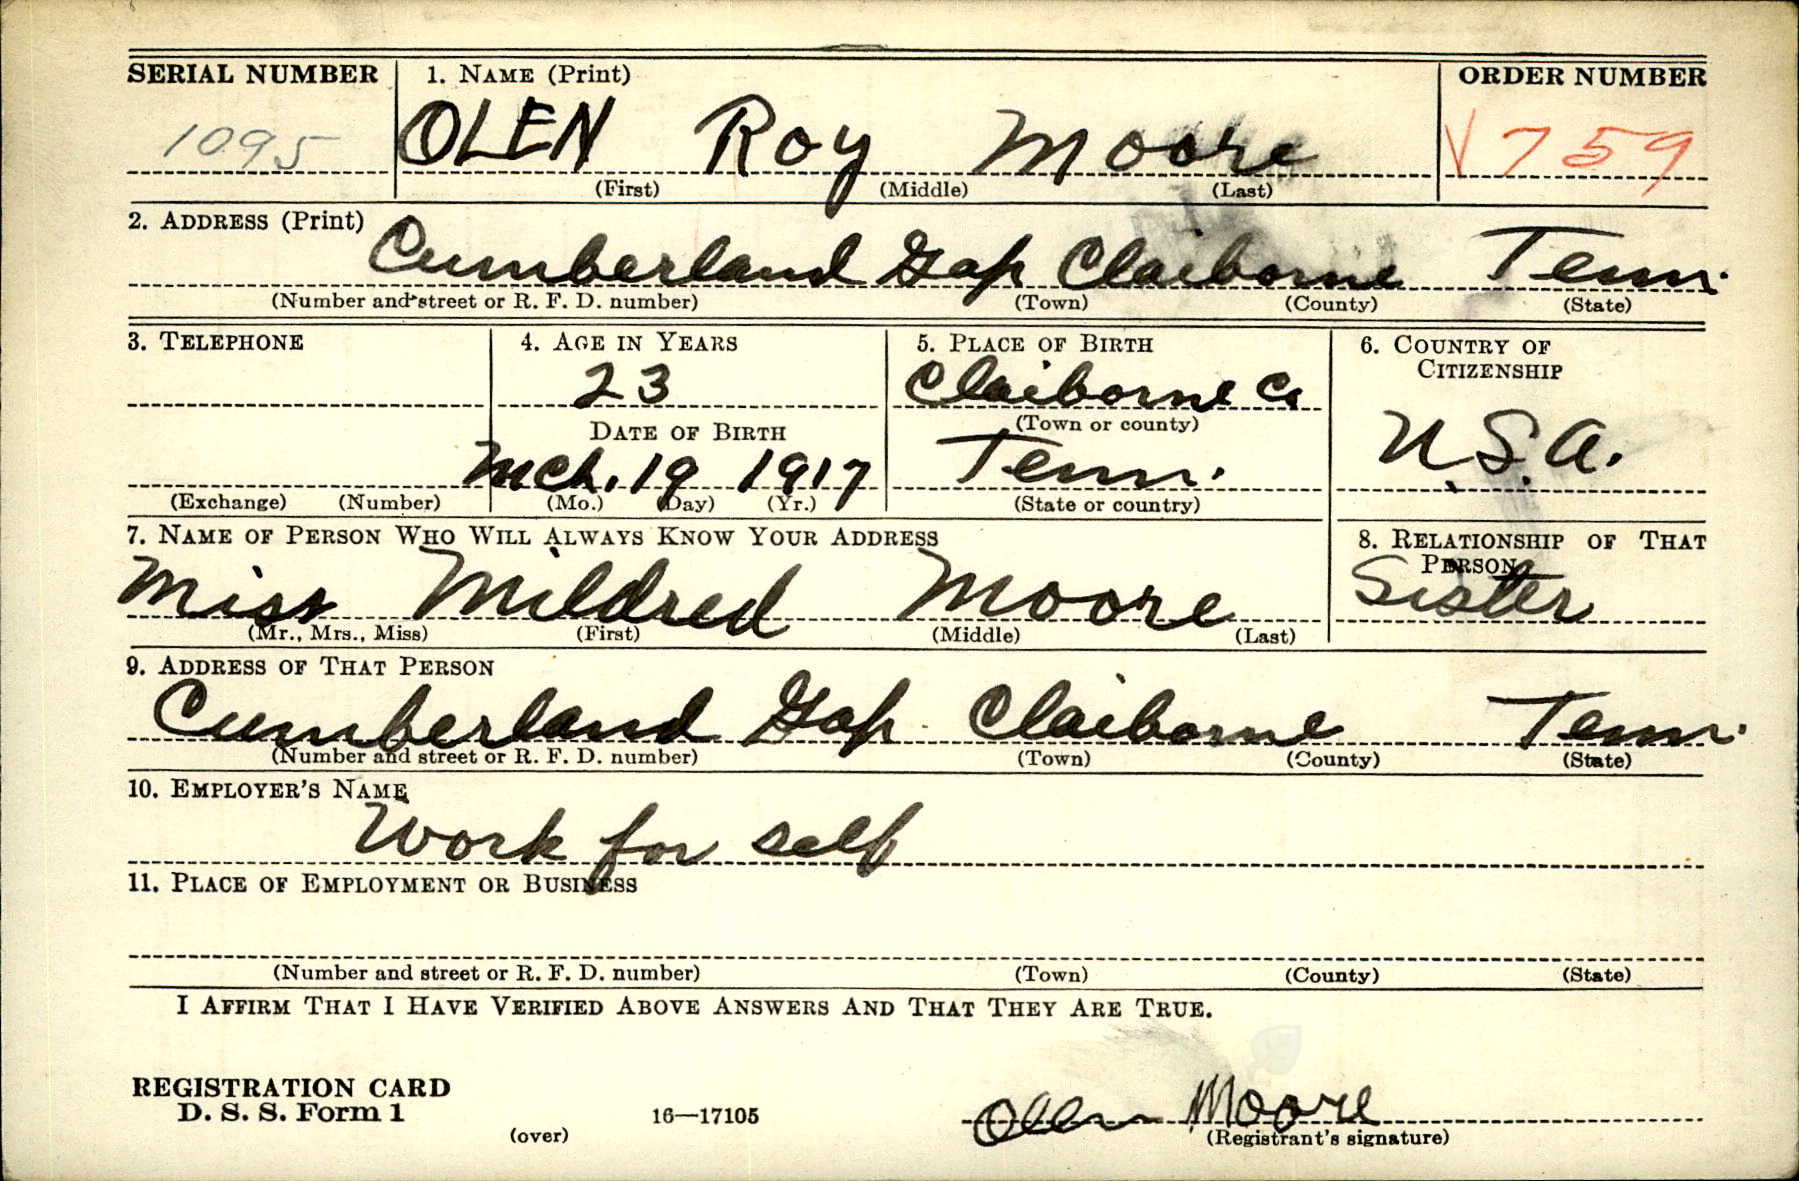 SERIAL NUMBER 1. NAME (Print) ORDER NUMBER
1095 OLEN Roy Moore V759
(First) (Middle) (Last)
2. ADDRESS (Print)
Cumberland Gap Claiborne Tenn.
(Number and street or R. F. D. number) (Town) (County) (State)
3. TELEPHONE 4. AGE IN YEARS 5. PLACE OF BIRTH 6. COUNTRY OF CITIZENSHIP
23 Claiborne Co
DATE OF BIRTH (Town or county)
Mch. 19 1917 Tenn. U.S.A.
(Exchange) (Number) (Mo.) (Day) (Yr.) (State or country)
7. NAME OF PERSON WHO WILL ALWAYS KNOW YOUR ADDRESS 8. RELATIONSHIP OF THAT PERSON
Miss Mildred Moore Sister
(Mr., Mrs., Miss) (First) (Middle) (Last)
9. ADDRESS OF THAT PERSON
Cumberland Gap Claiborne Tenn.
(Number and street or R. F. D. number) (Town) (County) (State)
10. EMPLOYER'S NAME
Work for self
11. PLACE OF EMPLOYMENT OR BUSINESS
(Number and street or R. F. D. number) (Town) (County) (State)
I AFFIRM THAT I HAVE VERIFIED ABOVE ANSWERS AND THAT THEY ARE TRUE.
REGISTRATION CARD
D. S. S. Form 1 16—17105 Olen Moore
(over) (Registrant's signature)